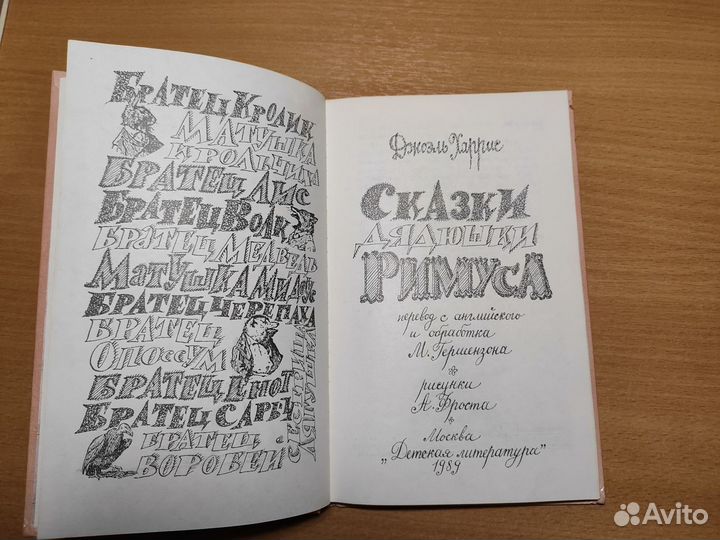 Братец Кролик
Матушка
Крольчиха
Братец Лис
Братец Волк
Братец Медведь
Матушка Мидоус
Братец Черепаха
Братец
Опоссум
Братец Енот
Братец Сарыч
Братец
Воробей
Джоэль Харрис
Сказки
дядюшки
Римуса
перевод с английского
и обработка
М. Гершензона
рисунки
А. Фроста
Москва
„Детская литература"
1989
Avito